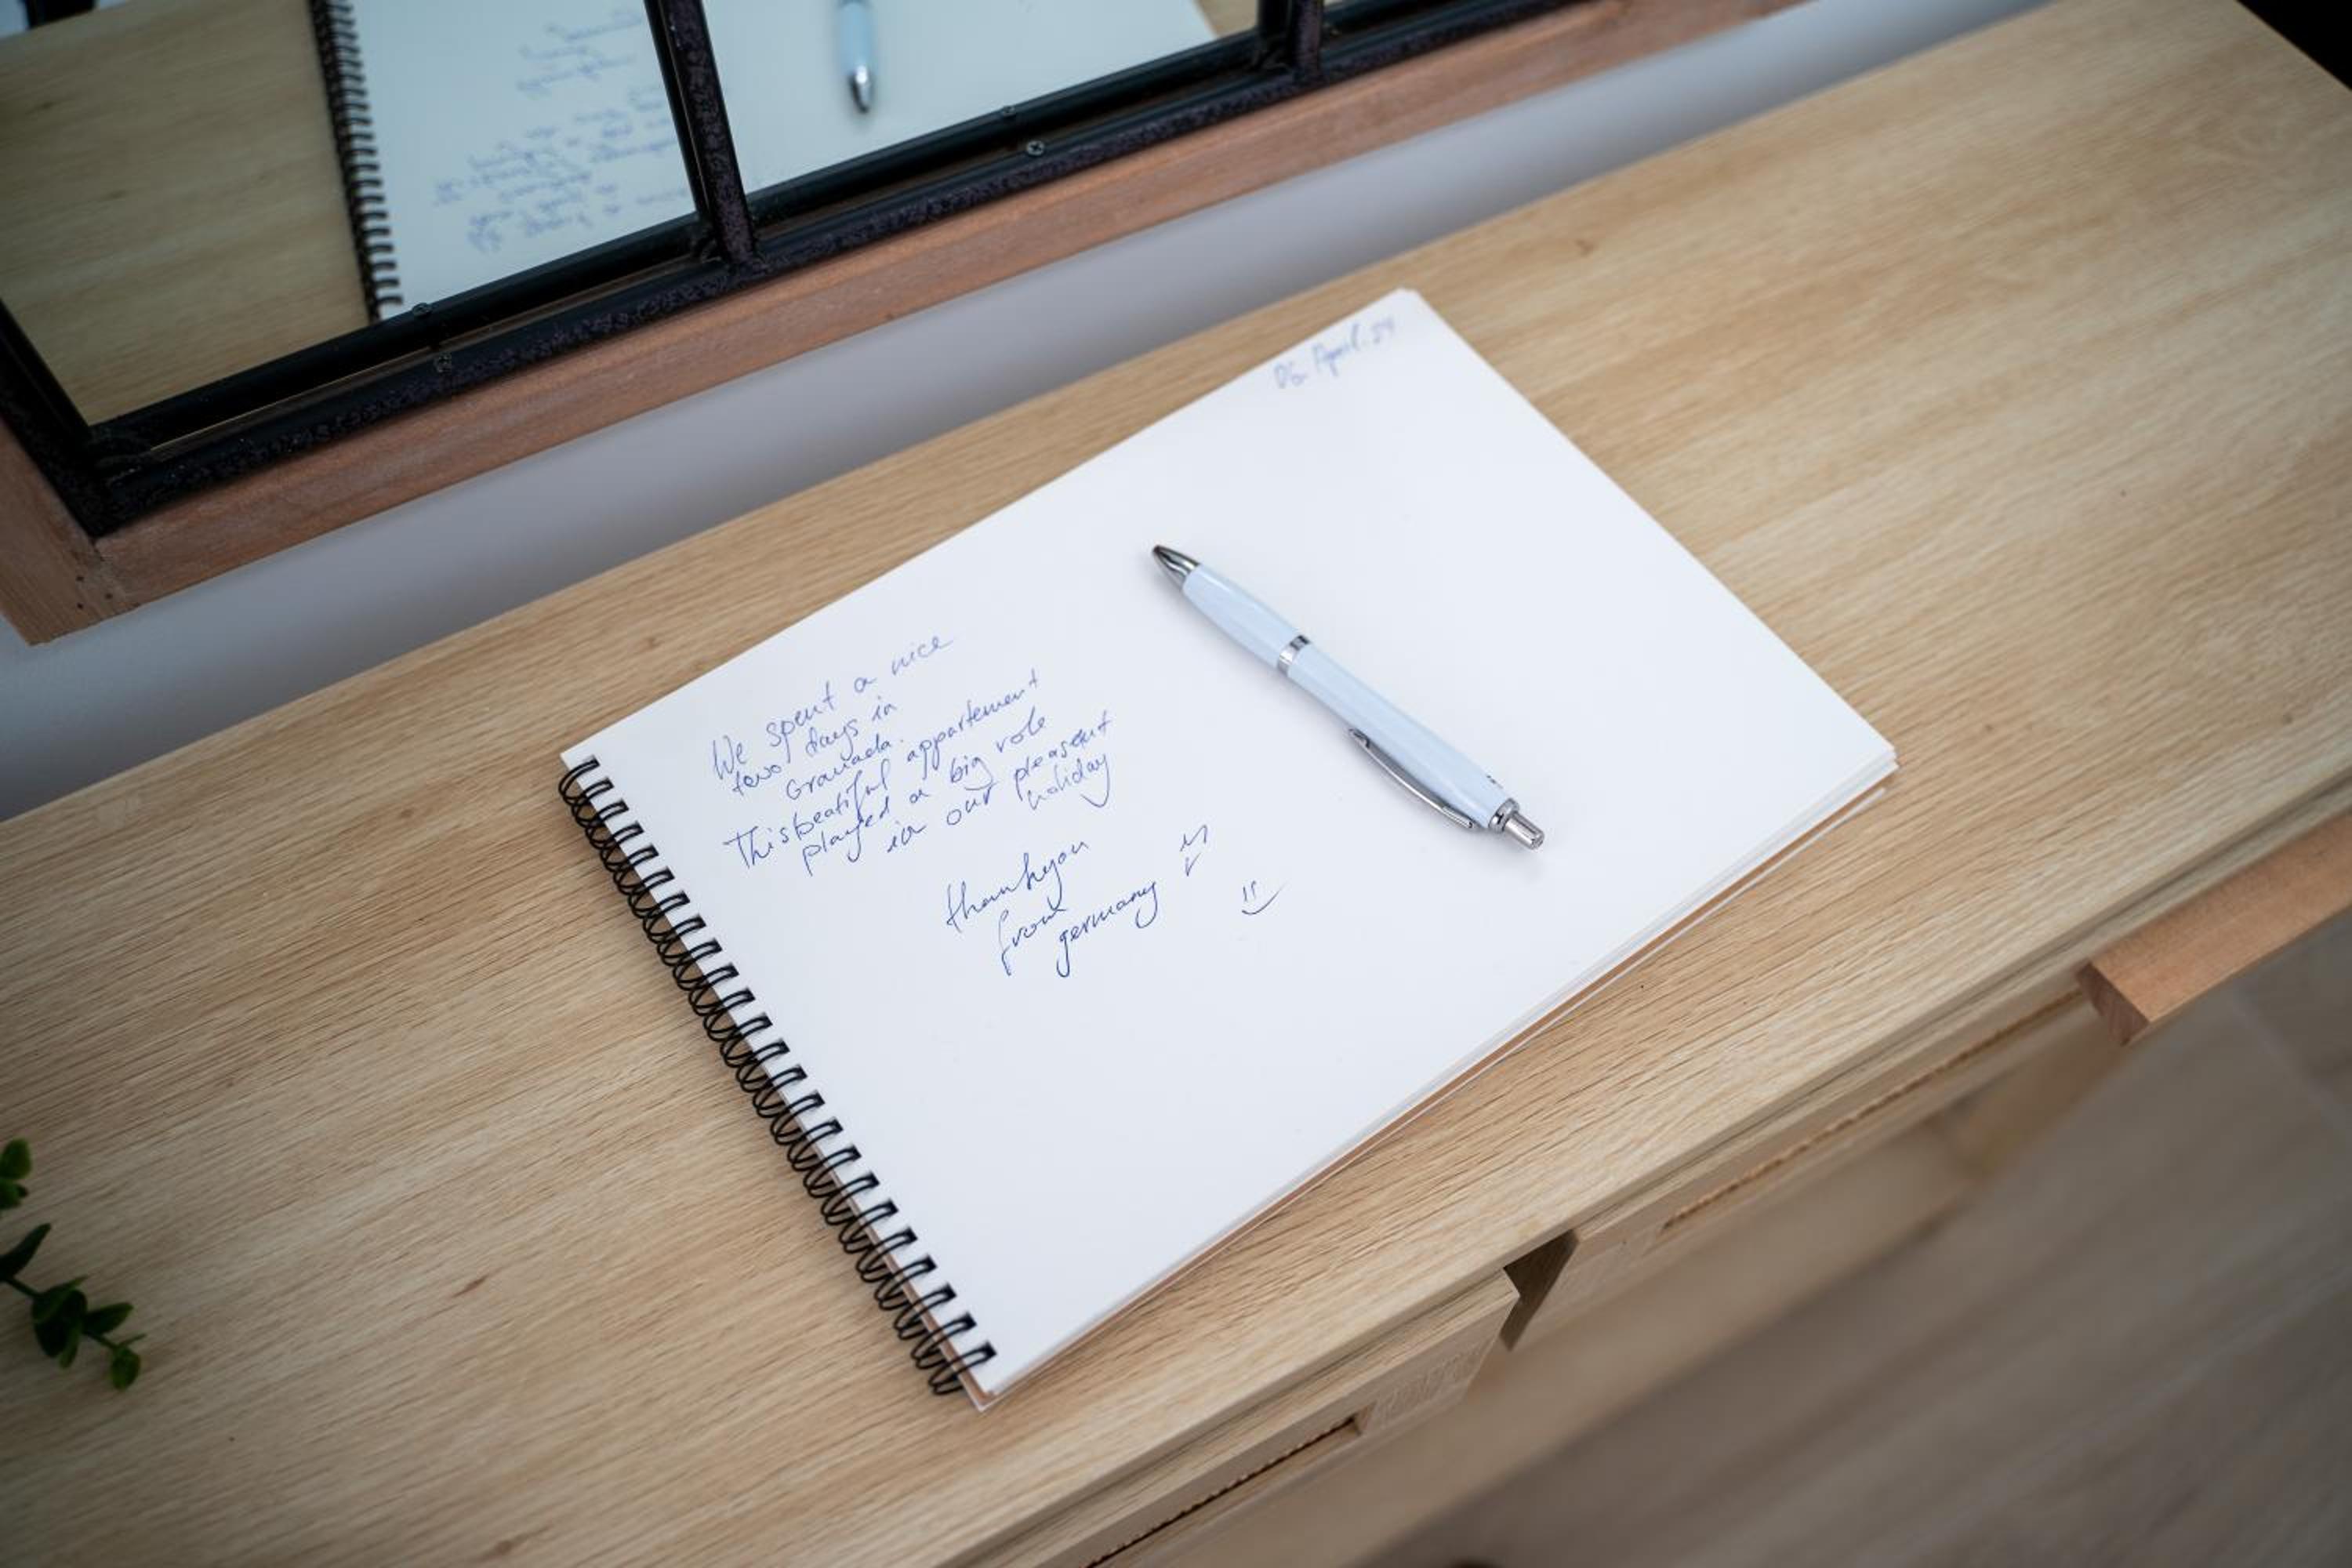 April.24
We spent a nice
two days in
Granada.
This beatiful appartement
played a big role
in our pleasent
holiday
thankyou
from
germany